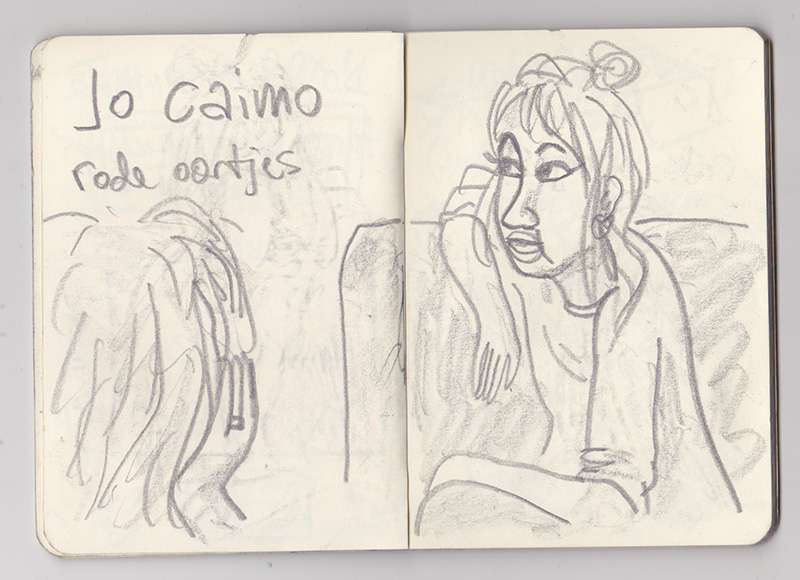 Jo caimo
rode oortjes